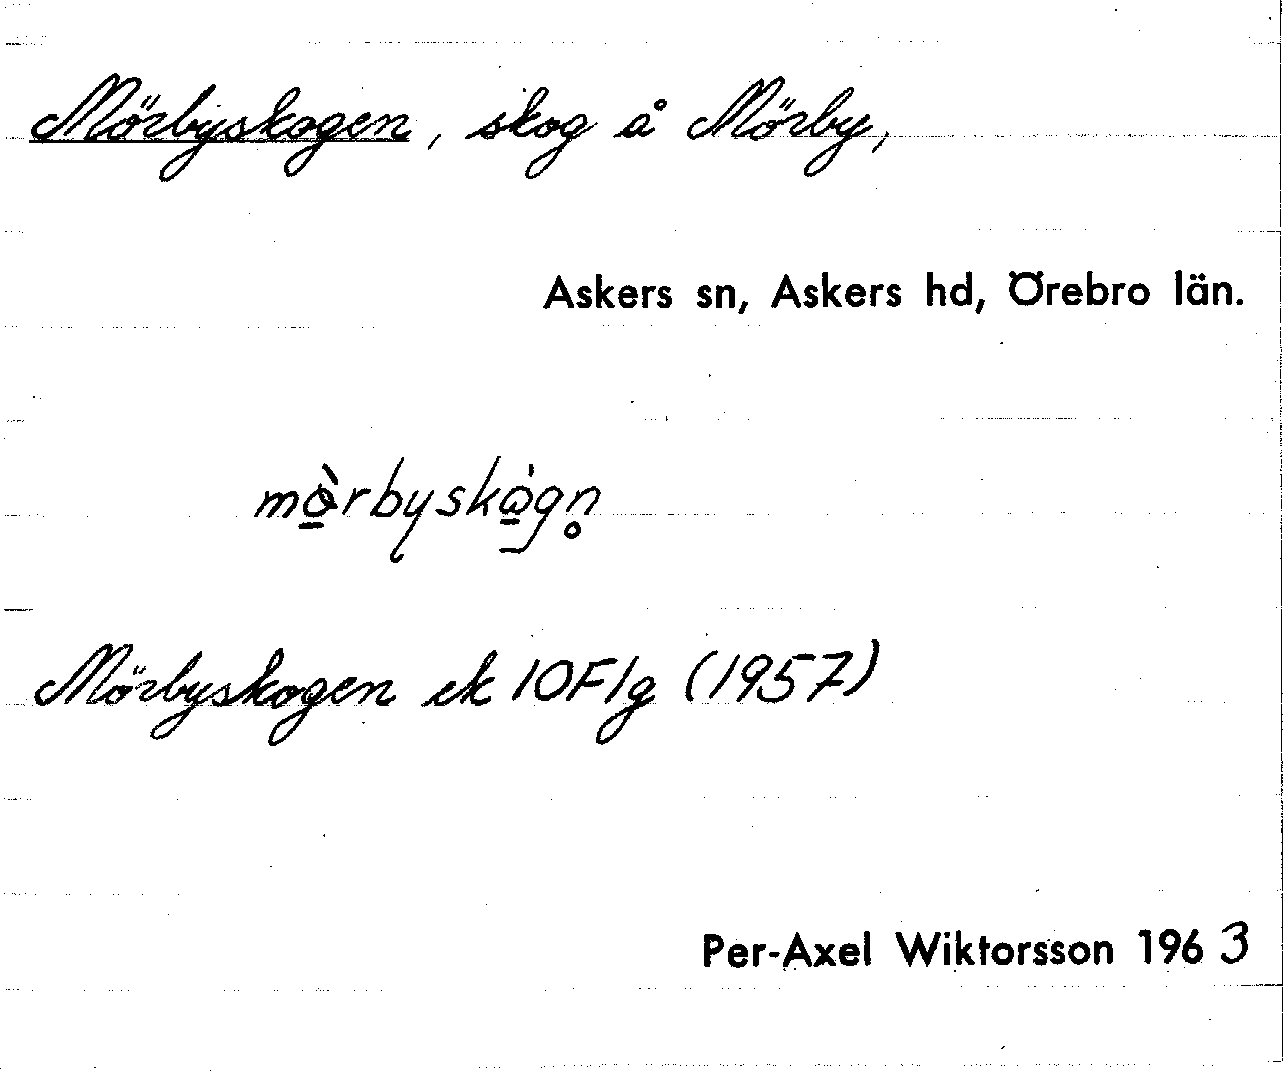 Mörbyskogen, skog å Mörby,
Askers sn, Askers hd, Örebro län.
mö̀rbyskɷ̀gn̥
Mörbyskogen ek 10F1g (1957)
Per-Axel Wiktorsson 1963